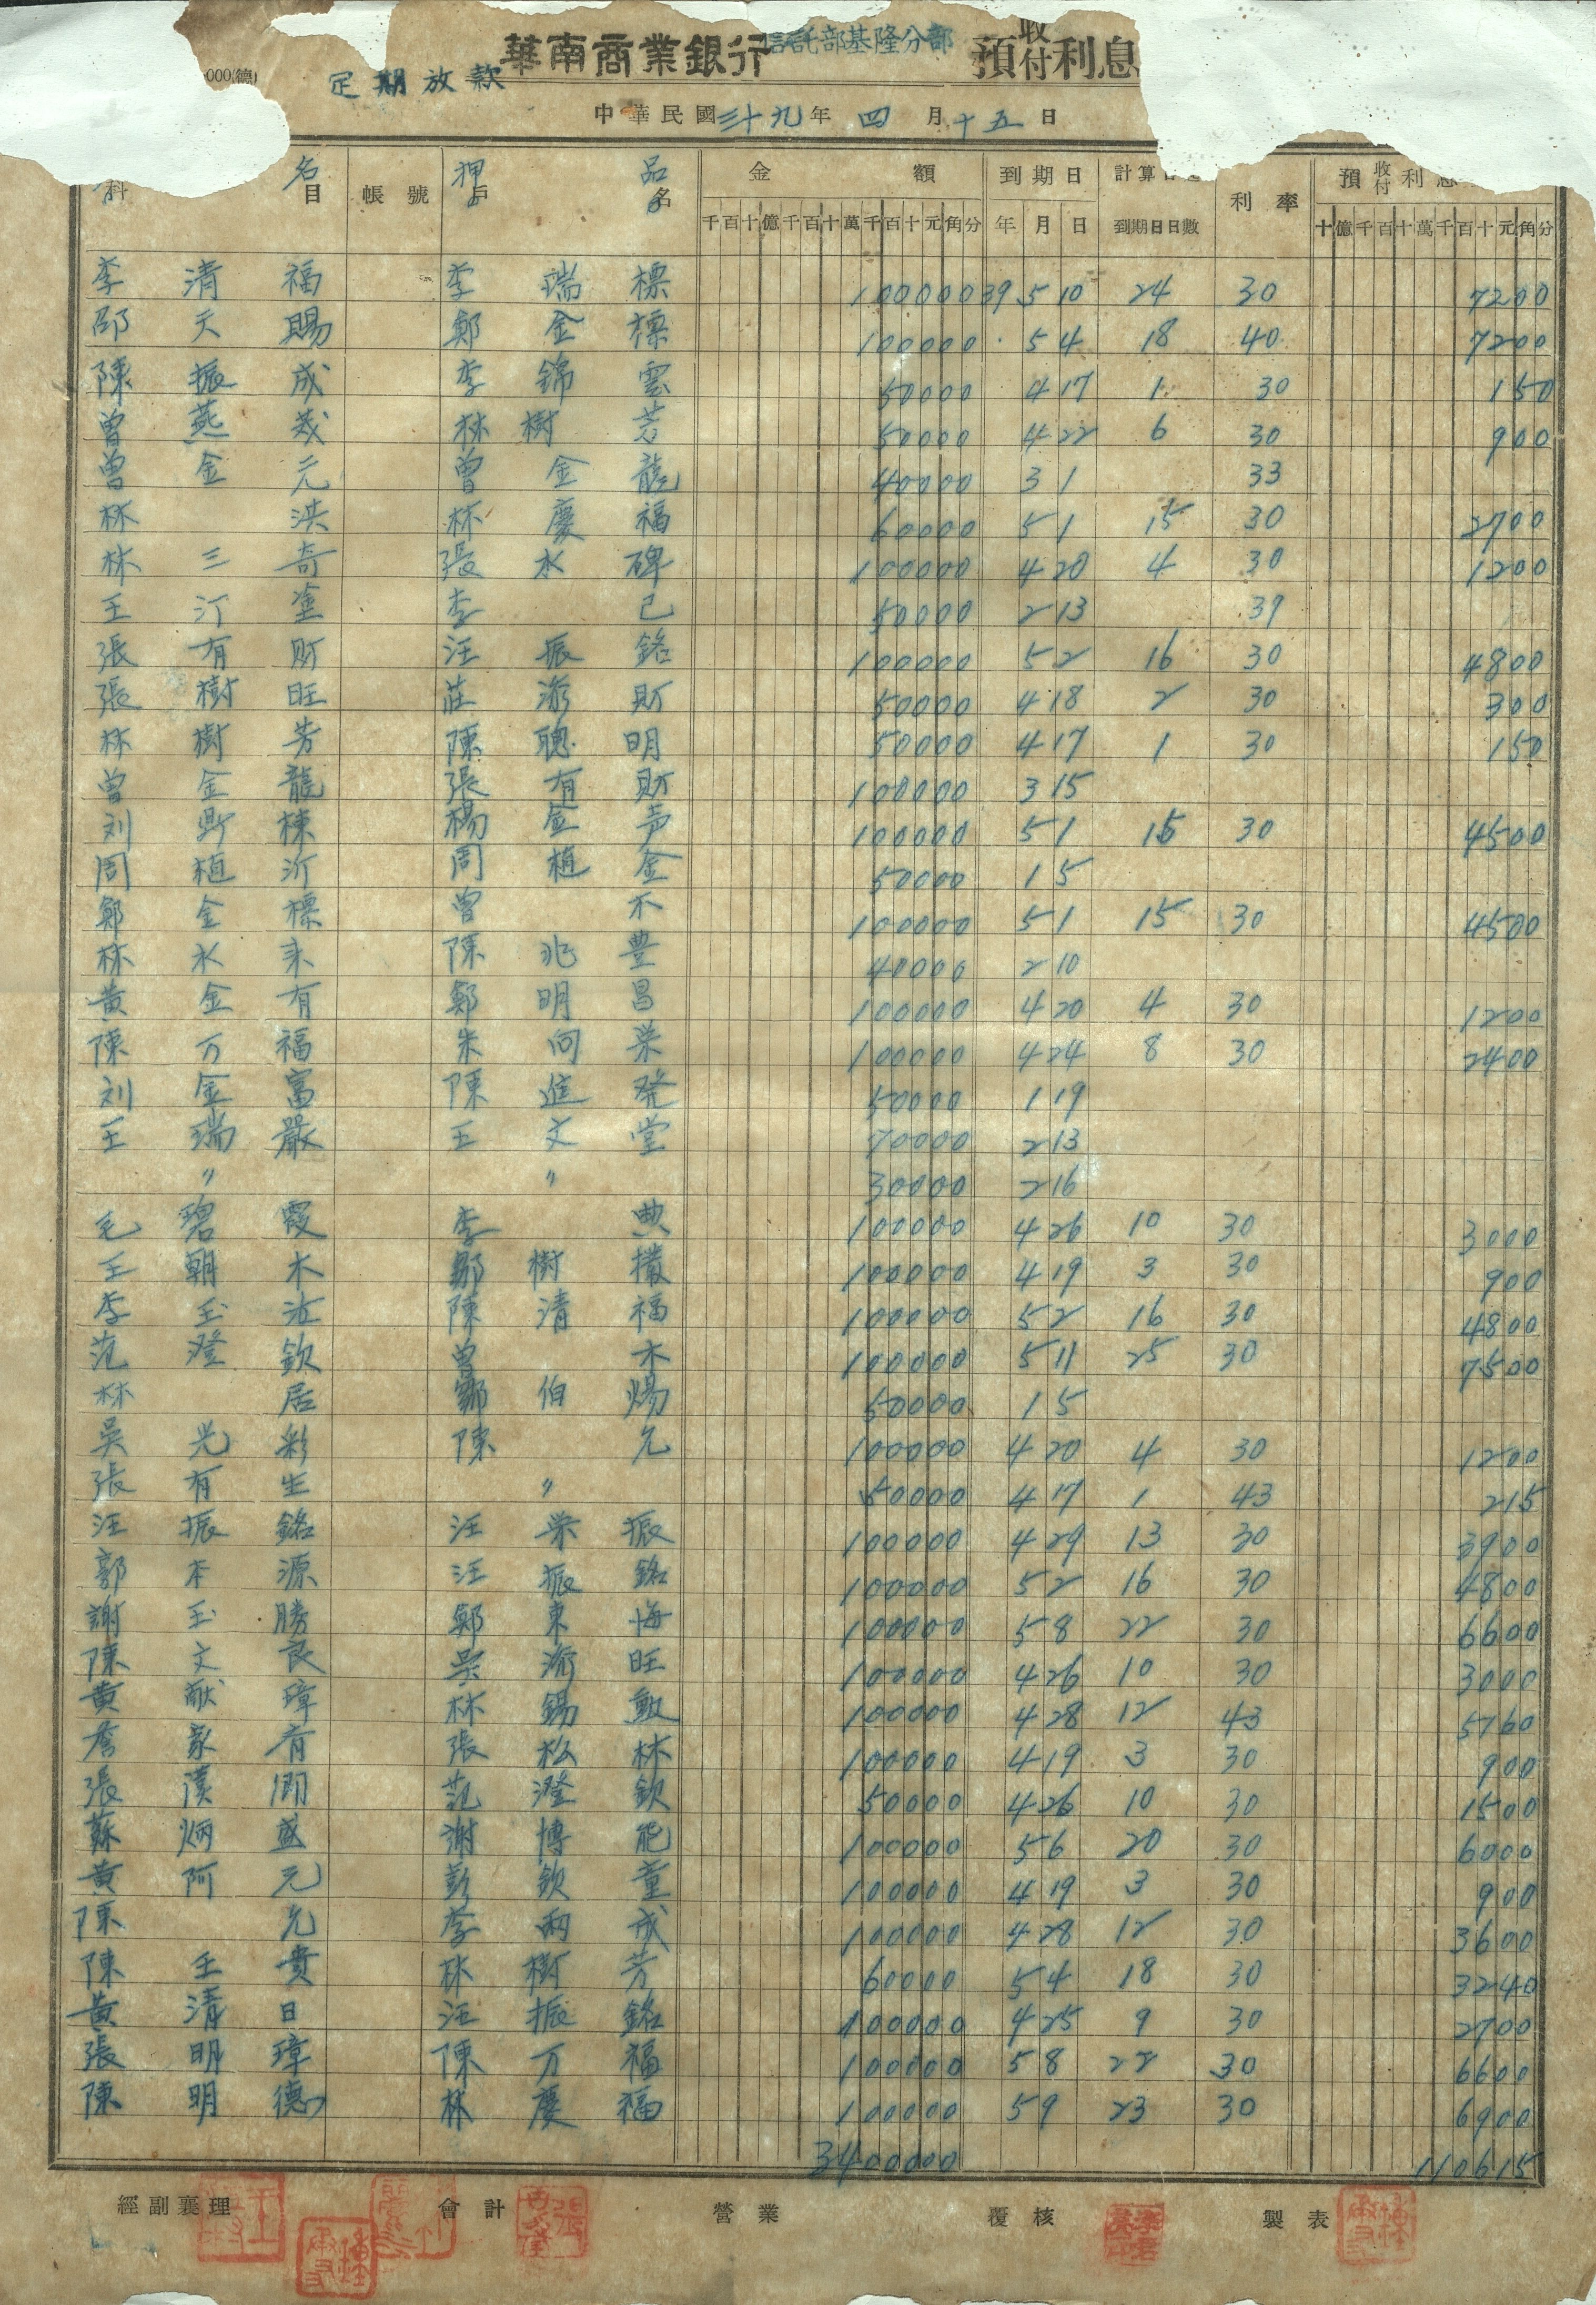 華南商業銀行 信託部基隆分部 預收付利息
000(德)
定期放款
中華民國三十九年 四 月 十五 日
科 名目 帳號 押戶 品名 金額 到期日 計算 利率 預收付利息
千百十億千百十萬千百十元角分 年 月 日 到期日日數 十億千百十萬千百十元角分
李清福 李瑞標 100000 39 5 10 24 30 7200
邵天賜 鄭金標 100000 5 4 18 40 7200
陳振成 李錦雲 50000 4 17 1 30 150
曾燕 林樹芳 50000 4 22 6 30 900
曾金元 曾金龍 40000 3 1 33
林洪 林慶福 60000 5 1 15 30 2700
林三奇 張水碑 100000 4 20 4 30 1200
王汀塗 李己 50000 2 13 39
張有財 汪振銘 100000 5 2 16 30 4800
張樹旺 莊添財 50000 4 18 2 30 300
林樹芳 陳聰明 50000 4 17 1 30 150
曾金龍 張有財 100000 3 15
刘鼎棟 楊金声 100000 5 1 15 30 4500
周植沂 周植金 50000 1 5
鄭金標 曾不 100000 5 1 15 30 4500
林水來 陳兆豊 40000 2 10
黃金有 鄭明昌 100000 4 20 4 30 1200
陳万福 朱向栄 100000 4 24 8 30 2400
刘金富 陳進発 50000 1 19
王瑞嚴 王文堂 70000 2 13
〃 〃 30000 2 16
毛碧霞 李典 100000 4 26 10 30 3000
王朝木 鄒樹 100000 4 19 3 30 900
李玉 陳清福 100000 5 2 16 30 4800
范澄欽 曾木 100000 5 11 25 30 7500
林居 鄒伯煬 50000 1 5
吳光彩 陳允 100000 4 20 4 30 1200
張有生 〃 50000 4 17 1 43 215
汪振銘 汪栄振 100000 4 29 13 30 3900
郭木源 汪振銘 100000 5 2 16 30 4800
謝玉勝 鄭東海 100000 5 8 22 30 6600
陳文良 吳添旺 100000 4 26 10 30 3000
黃献璋 林錫勲 100000 4 28 12 43 5160
詹家齊 張松林 100000 4 19 3 30 900
張漢 范澄欽 50000 4 26 10 30 1500
蘇炳盛 謝博能 100000 5 6 20 30 6000
黃阿元 彭欽童 100000 4 19 3 30 900
陳允 李雨成 100000 4 28 12 30 3600
陳玉貴 林樹芳 60000 5 4 18 30 3240
黃清日 汪振銘 100000 4 25 9 30 2700
張明璋 陳万福 100000 5 8 22 30 6600
陳明德 林慶福 100000 5 9 23 30 6900
3400000 110615
經副襄理 會計 營業 覆核 製表